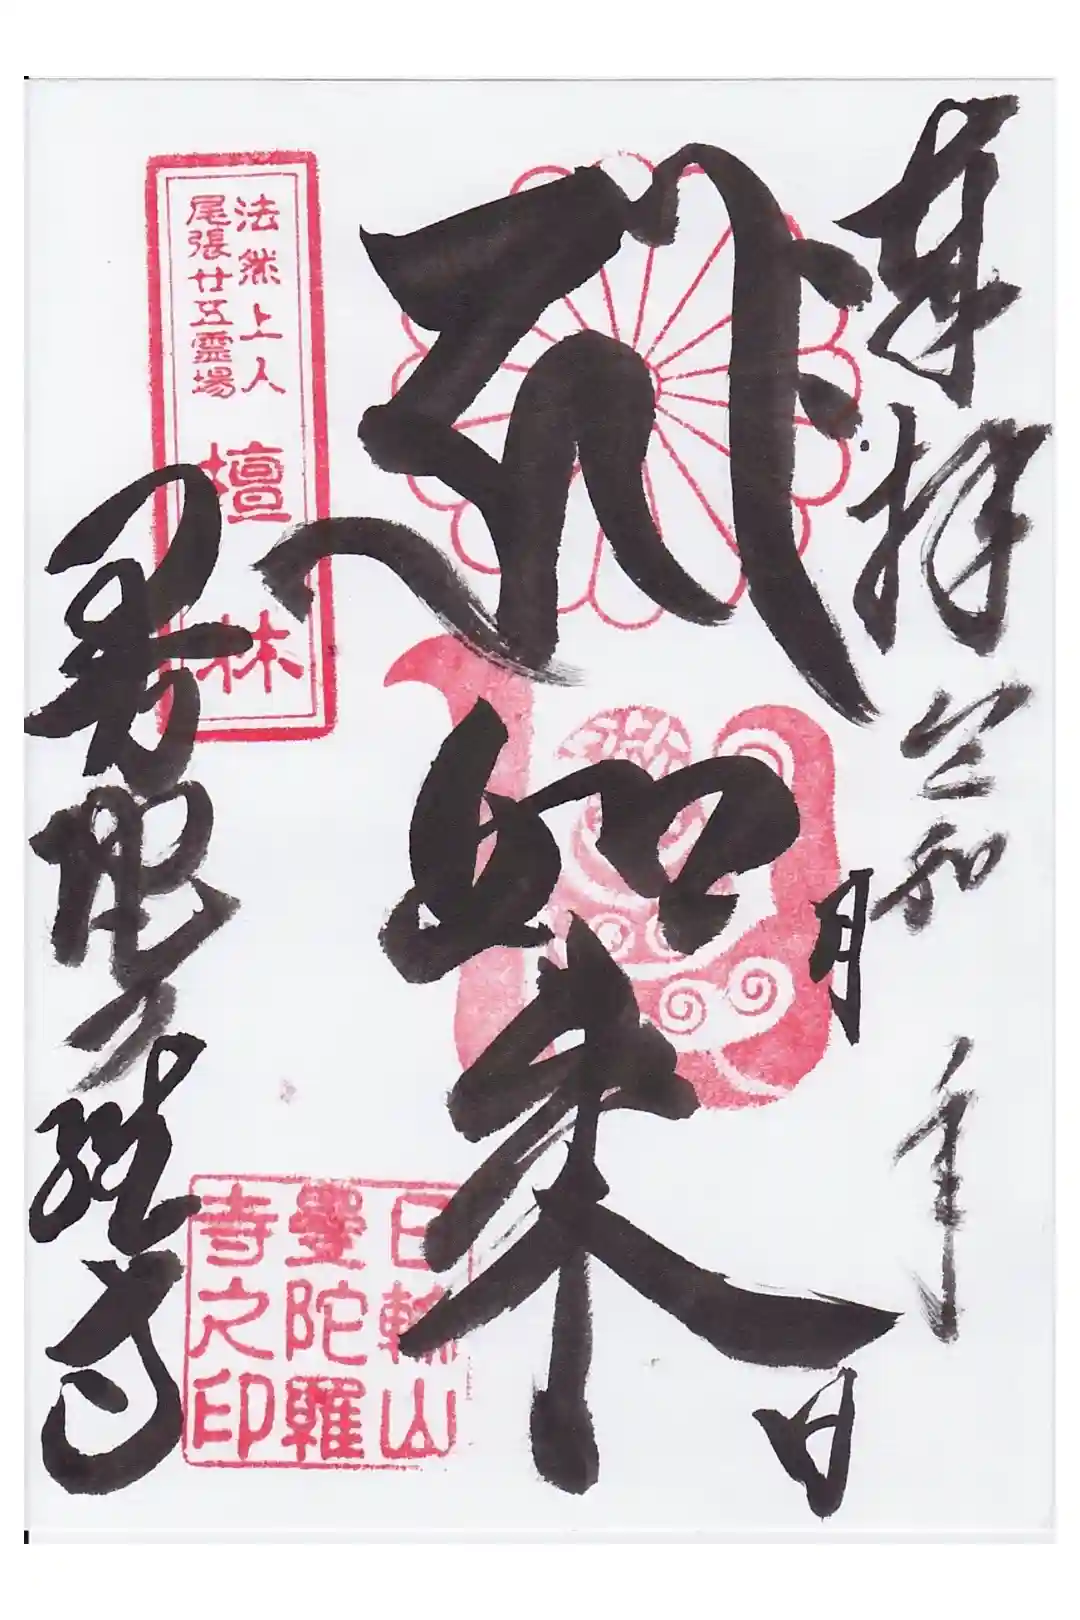 奉拝 令和 年 月 日
ह्रीः如来
法然上人
尾張廿五霊場
壇林
曼陀羅寺
日輪山
曼陀羅
寺之印